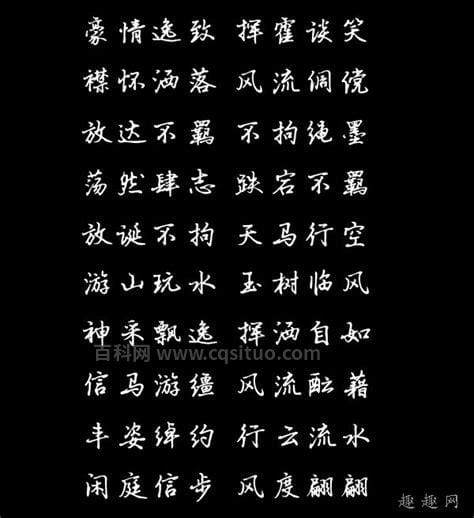 豪情逸致 挥霍谈笑
襟怀洒落 风流倜傥
放达不羁 不拘绳墨
荡然肆志 跌宕不羁
放诞不拘 天马行空
游山玩水 玉树临风
神采飘逸 挥洒自如
百科网 www.cqsituo.com
信马游缰 风流酝藉
丰姿绰约 行云流水
闲庭信步 风度翩翩
趣趣网